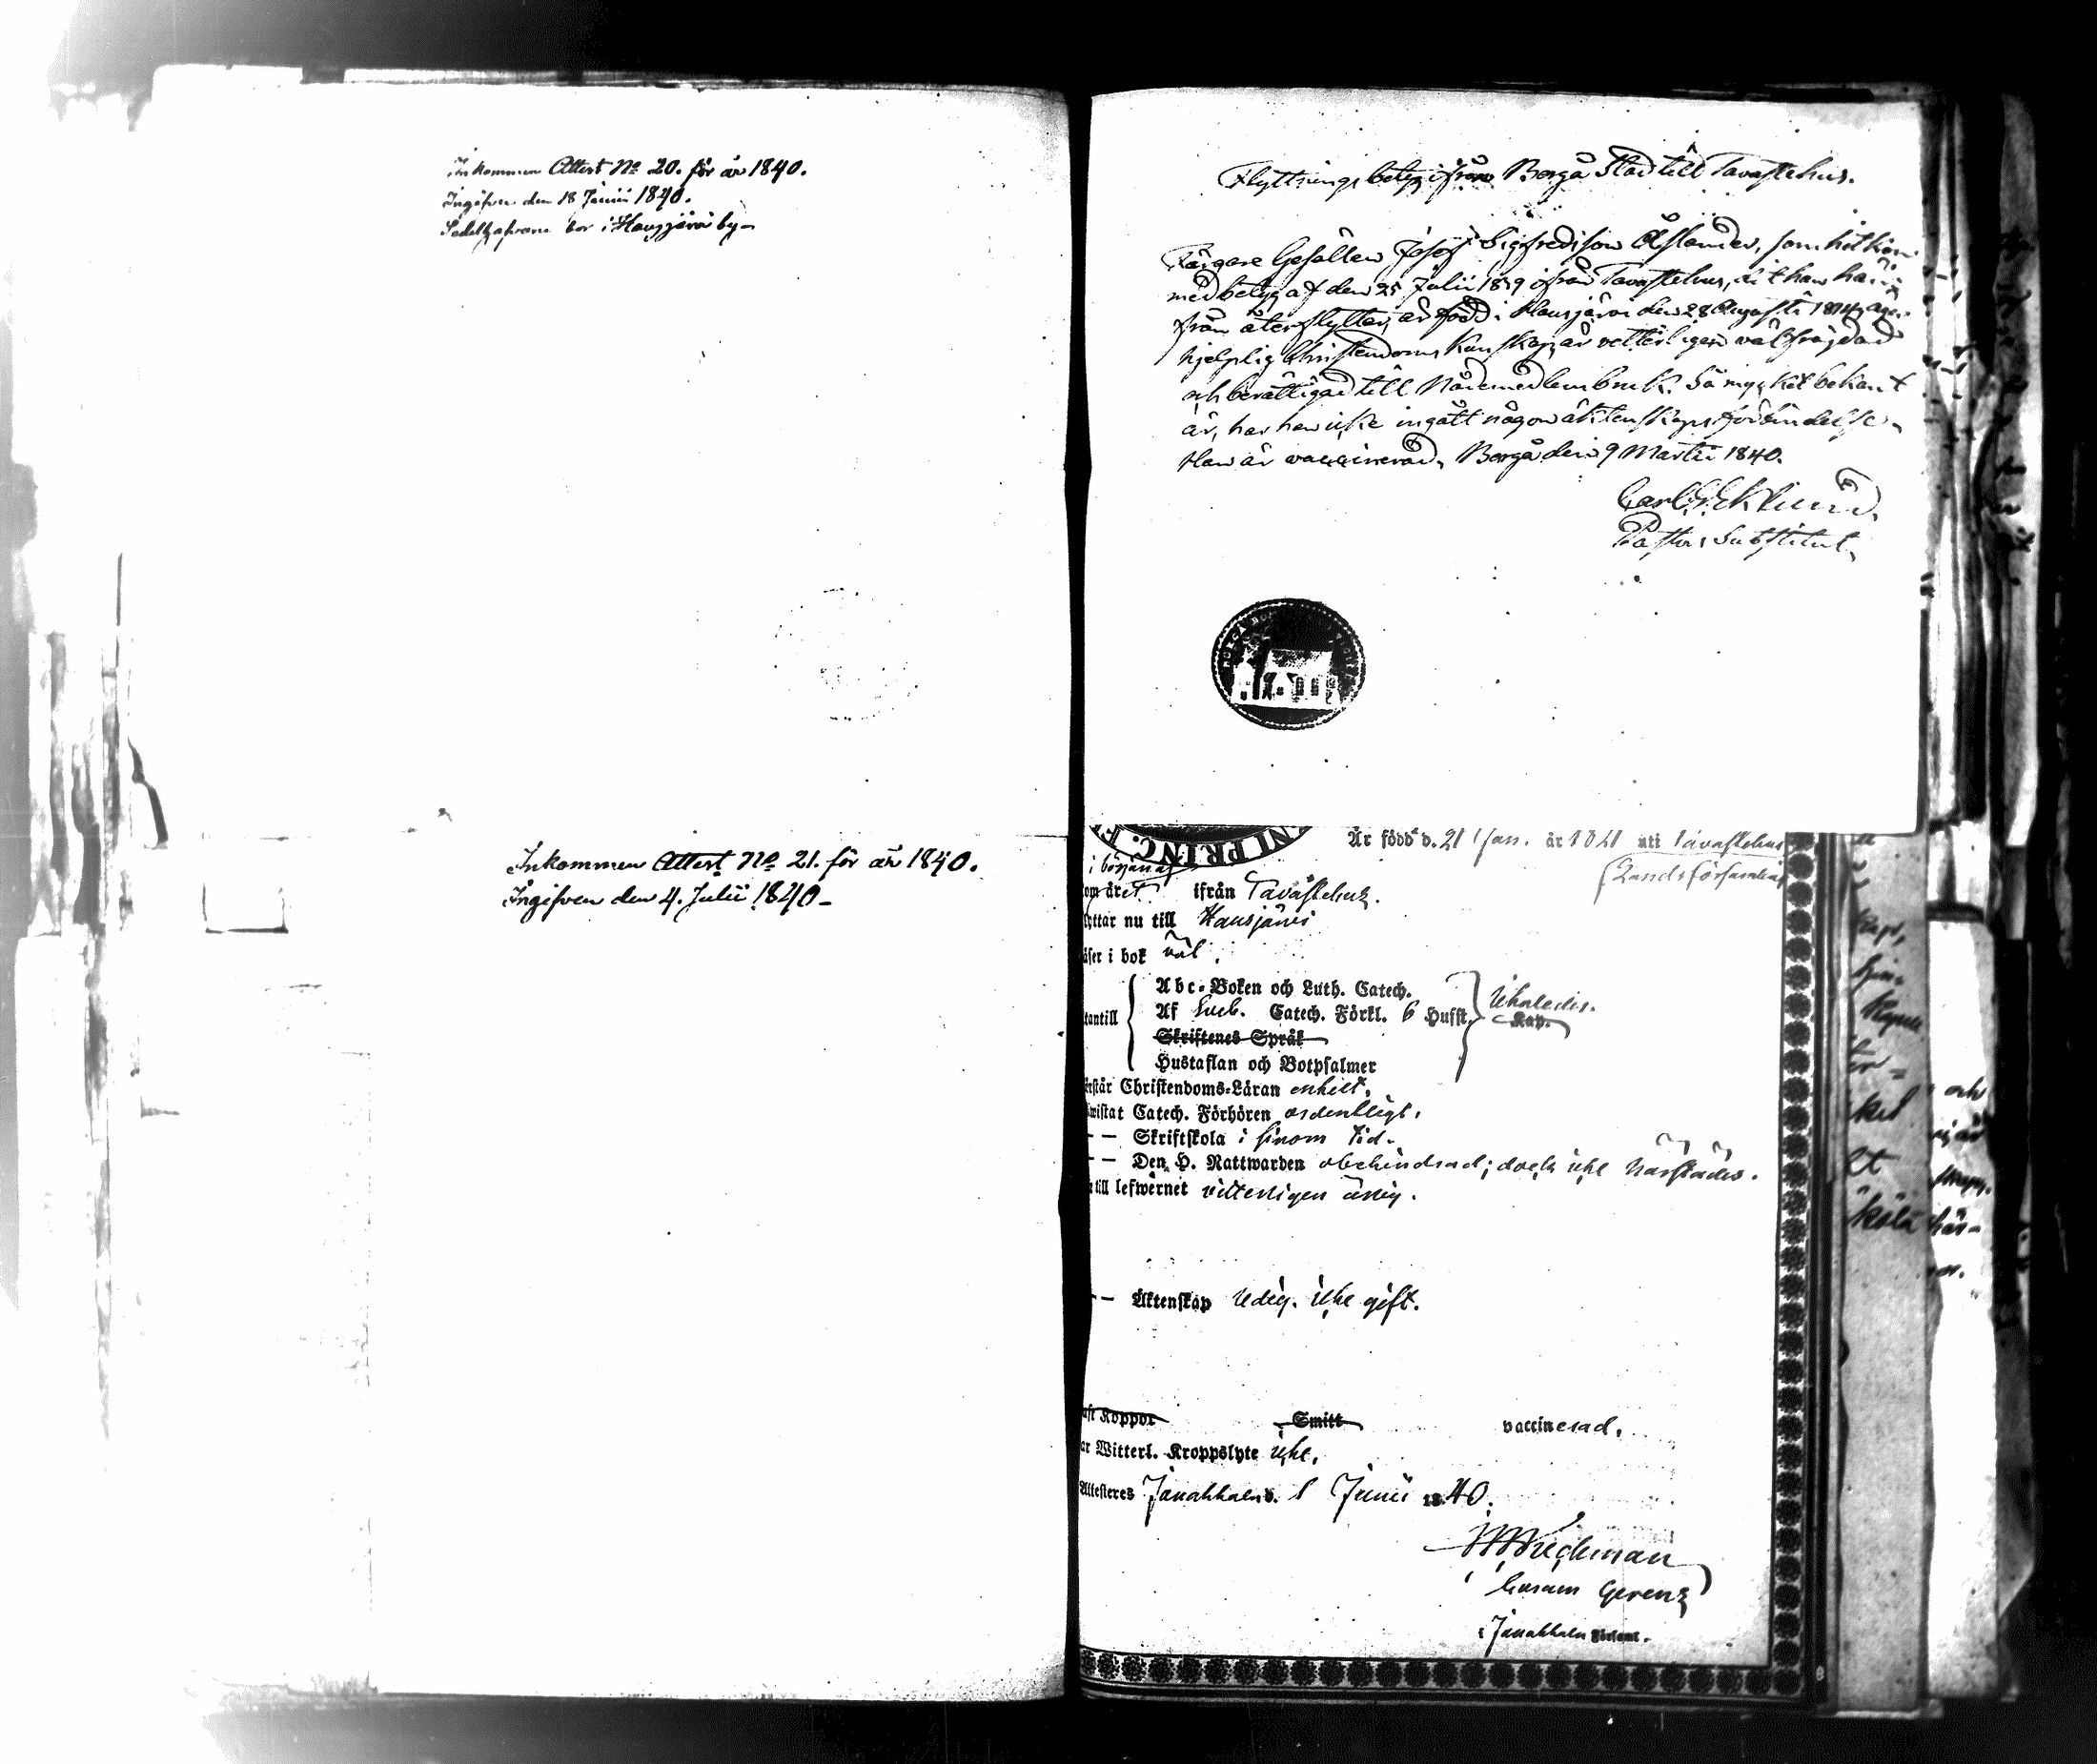 Inkommen Attest No 20. för år 1840.
Ingifven den 18 Junii 1840.
Sedelhafvaren bor i Hausjärvi by-
Inkommen Attest No 21. för år 1840.
Ingifven den 4. Julii 1840-
Flyttnings betyg ifrån Borgå Stad till Tavastehus.
Färgare Gesällen Josef Sigfredsson Åslander, som hit kom
med betyg af den 25 Julii 1839 ifrån Tavastehus, dit han här
ifrån återflyttar, är född i Hausjärvi den 28 Augusti 1814, äger
hjelplig Christendoms kunskap, är vetterligen välfrägdad
och berättigad till Nådemedlens bruk. Så mycket bekant
är, har han icke ingått någon äktenskaps förbindelse.
Han är vaccinerad. Borgå den 9 Martii 1840.
Carl Eklund.
Pastors Substitut.
NI PRINC. F
Är född d. 21 Jan. år 1821 uti Tavastehus
Landsförsamling
i början af
om året ifrån Tavastehus.
yttar nu till Hausjärvi
äser i bok väl.
Abc-Boken och Luth. Catech.
Af Sveb. Catech. Förkl. 6 Husst.
tantill
Skriftenes Språk
Hustaflan och Botpsalmer
rstår Christendoms-Läran enkelt.
wistat Catech. Förhören ordentligt.
— Skriftskola i sinom tid.
— Den H. Nattwarden obehindrad; dock icke härstädes.
till lefwernet vitterligen ärlig.
— Äktenskap ledig. icke gift.
aft Koppor Smitt vaccinerad.
ar Witterl. Kroppslyte icke.
Attesteres Janakkala d. 1 Junii 1840.
Wideman
Curam Gerens
i Janakkala Församl.